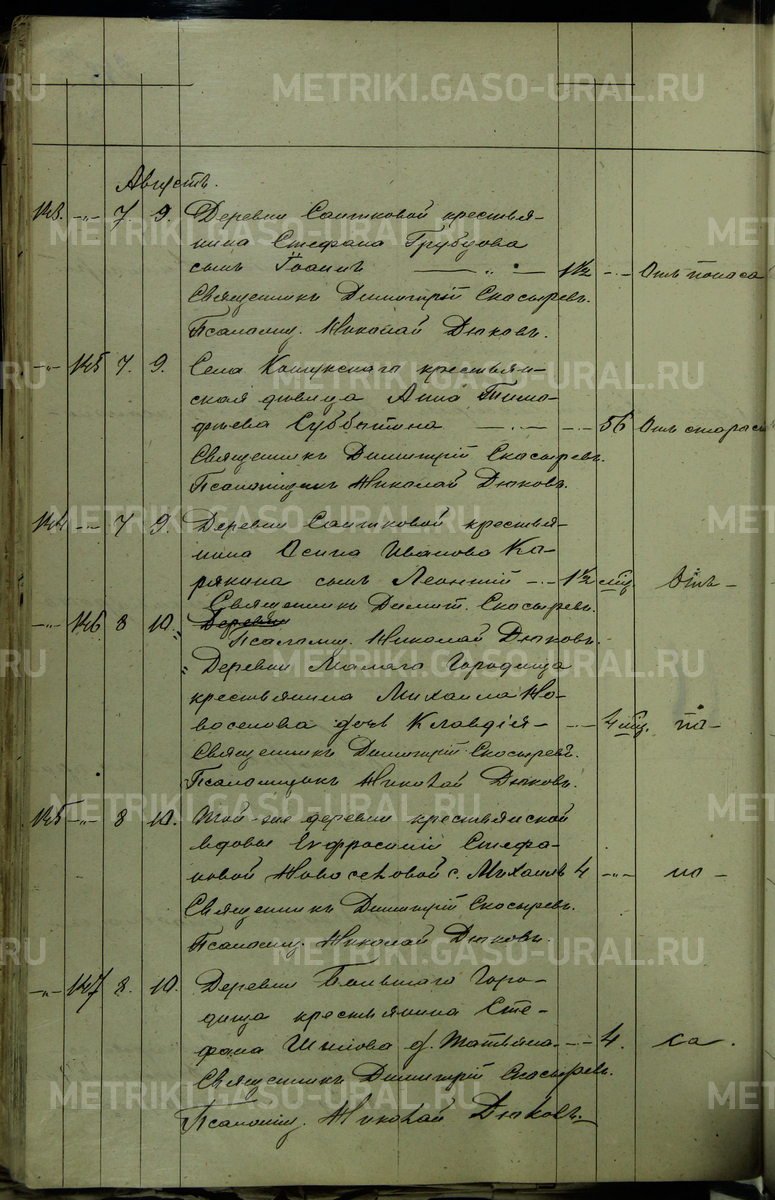 METRIKI.GASO-URAL.RU
Августъ.
143. -"- 7. 9. Деревни Саитковой крестья-
нина Стефана Трубцова
сынъ Іоаннъ — " — 1 1/2 -"- Отъ поноса
Священникъ Димитрій Скосыревъ.
Псаломщ. Николай Дюковъ.
-"- 145 7. 9. Села Кошукскаго крестьян-
ская дѣвица Анна Тимо-
фѣева Субботина — " — -"- 56 Отъ старости
Священникъ Димитрій Скосыревъ.
Псаломщикъ Николай Дюковъ.
144 -"- 7 9. Деревни Саитковой крестья-
нина Осипа Иванова Ка-
рякина сынъ Леонтій -"- 1 1/2 мц. Отъ -
Священникъ Димит. Скосыревъ.
-"- 146 8 10. Деревни
Псаломщ. Николай Дюковъ.
Деревни Малаго Городища
крестьянина Михаила Но-
воселова дочь Клавдія - -"- 4 мц. по-
Священникъ Димитрій Скосыревъ.
Псаломщикъ Николай Дюковъ.
145 -"- 8 10. Той-же деревни крестьянской
вдовы Евфросиніи Стефа-
новой Новоселовой с. Михаилъ 4 -"- но -
Священникъ Димитрій Скосыревъ.
Псаломщ. Николай Дюковъ.
-"- 147 8. 10. Деревни Большаго Горо-
дища крестьянина Сте-
фана Шилова д. Татьяна. -"- 4. са.
Священникъ Димитрій Скосыревъ.
Псаломщ. Николай Дюковъ.